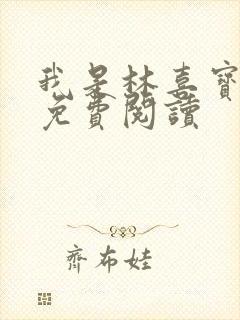 我是林喜寶
免費閱讀
齊布娃